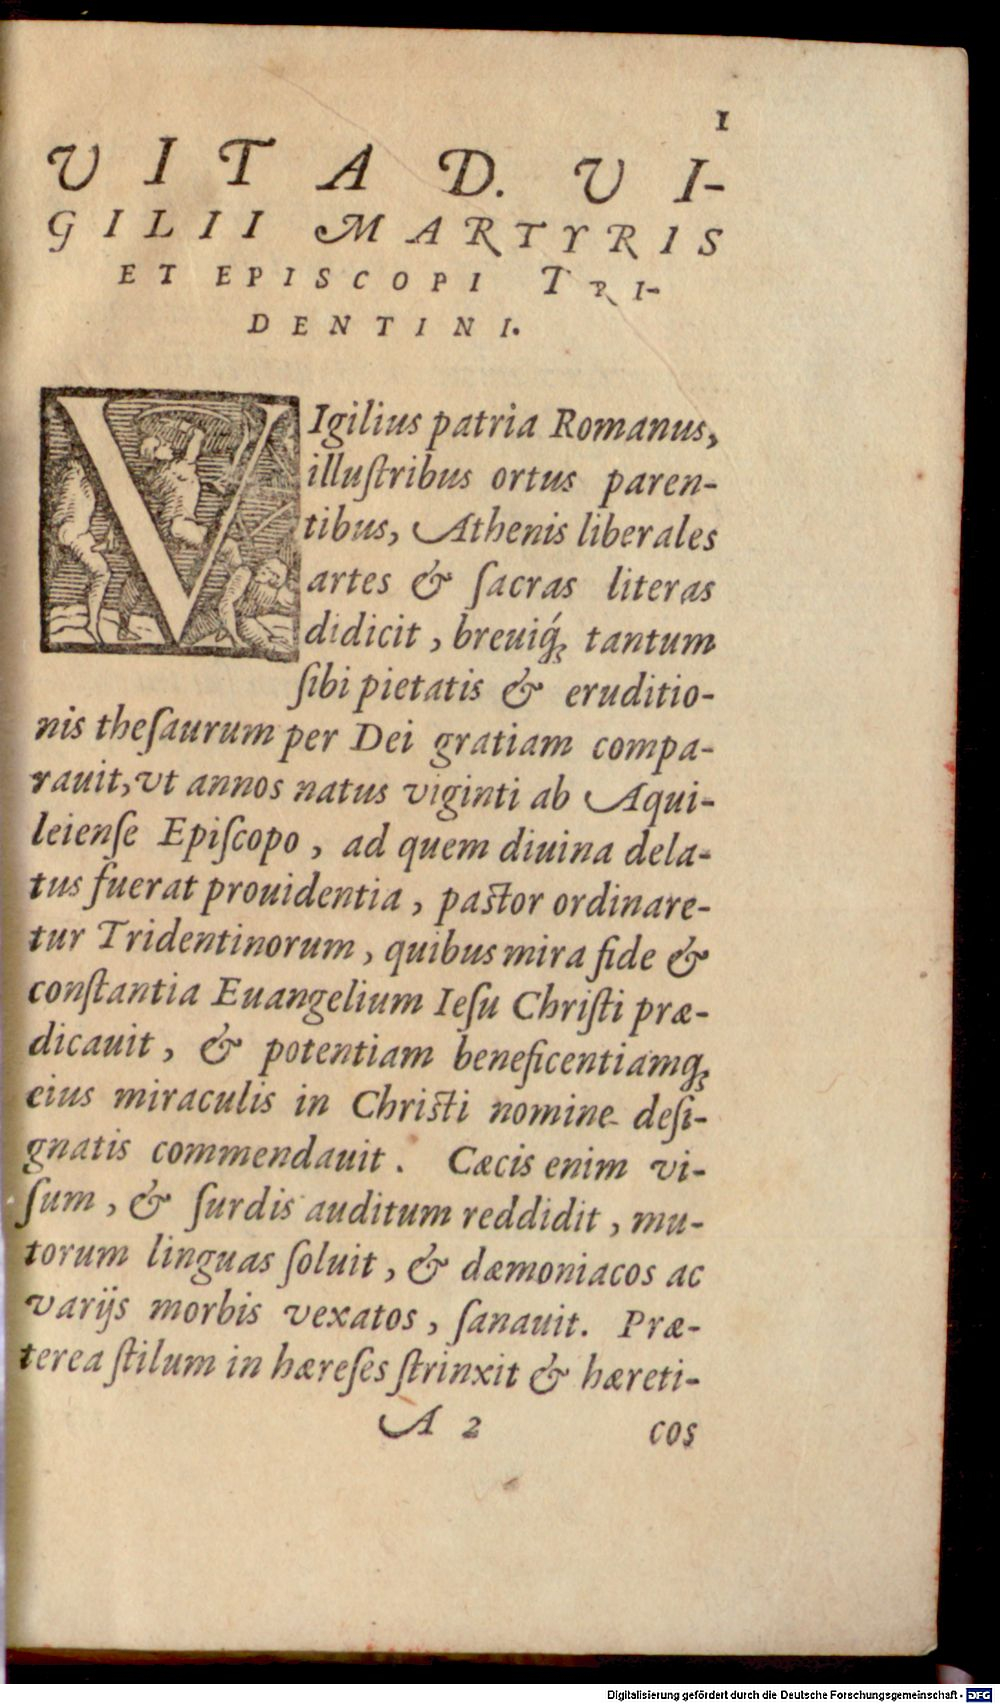 1
VITA D. VI-
GILII MARTYRIS
ET EPISCOPI TRI-
DENTINI.
VIgilius patria Romanus,
illuſtribus ortus paren-
tibus, Athenis liberales
artes & ſacras literas
didicit, breuiq́ꝫ tantum
ſibi pietatis & eruditio-
nis theſaurum per Dei gratiam compa-
rauit, vt annos natus viginti ab Aqui-
leienſe Epiſcopo, ad quem diuina dela-
tus fuerat prouidentia, paſtor ordinare-
tur Tridentinorum, quibus mira fide &
conſtantia Euangelium Ieſu Chriſti præ-
dicauit, & potentiam beneficentiamqꝫ
eius miraculis in Chriſti nomine deſi-
gnatis commendauit. Cæcis enim vi-
ſum, & ſurdis auditum reddidit, mu-
torum linguas ſoluit, & dæmoniacos ac
varijs morbis vexatos, ſanauit. Præ-
terea ſtilum in hæreſes ſtrinxit & hæreti-
A 2 cos
Digitalisierung gefördert durch die Deutsche Forschungsgemeinschaft - DFG